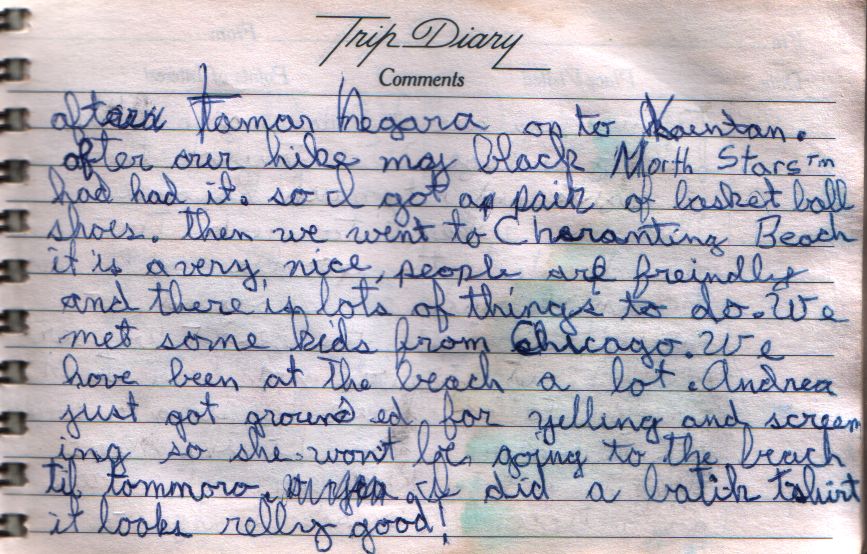 Trip Diary
Comments
after Taman Negara on to Kauntan.
after our hike my black North Stars™
had had it. so I got a pair of basket ball
shoes. then we went to Charanting Beach
it is a very nice, people are freindly
and there is lots of things to do. We
met some kids from Chicago. We
have been at the beach a lot. Andrea
just got ground ed for yelling and scream
ing so she won't be going to the beach
til tommoro. I did a batik tshirt
it looks relly good!